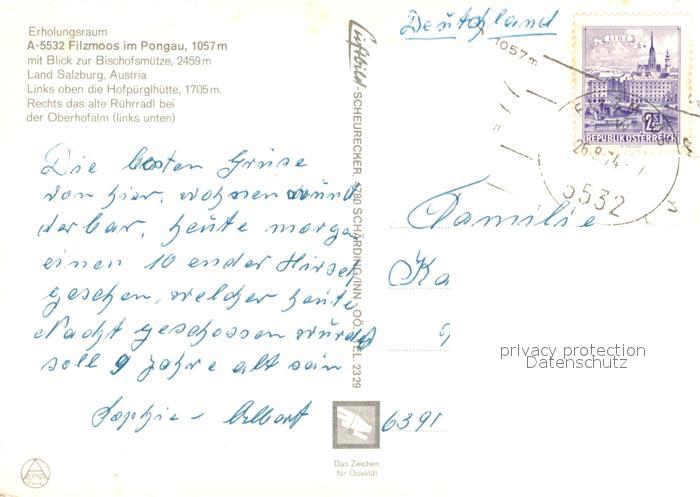 Erholungsraum
A-5532 Filzmoos im Pongau, 1057 m
mit Blick zur Bischofsmütze, 2459 m
Land Salzburg, Austria
Links oben die Hofpürglhütte, 1705 m.
Rechts das alte Rührradl bei
der Oberhofalm (links unten)
Die besten Grüse
von hier, wohnen wund
derbar, heute morge
einen 10 ender Hirsch
gesehen, welcher heute
Nacht geschossen wurde
soll 9 Jahre alt sein
Sophie - Albert
Luftbild-SCHEURECKER, 4780 SCHÄRDING/INN, OÖ., TEL. 2329
Das Zeichen
für Qualität
Deutschland
LINZ
2.50
REPUBLIK ÖSTERREICH
1057 m
26.8.74
5532
Familie
Ka
6391
privacy protection
Datenschutz